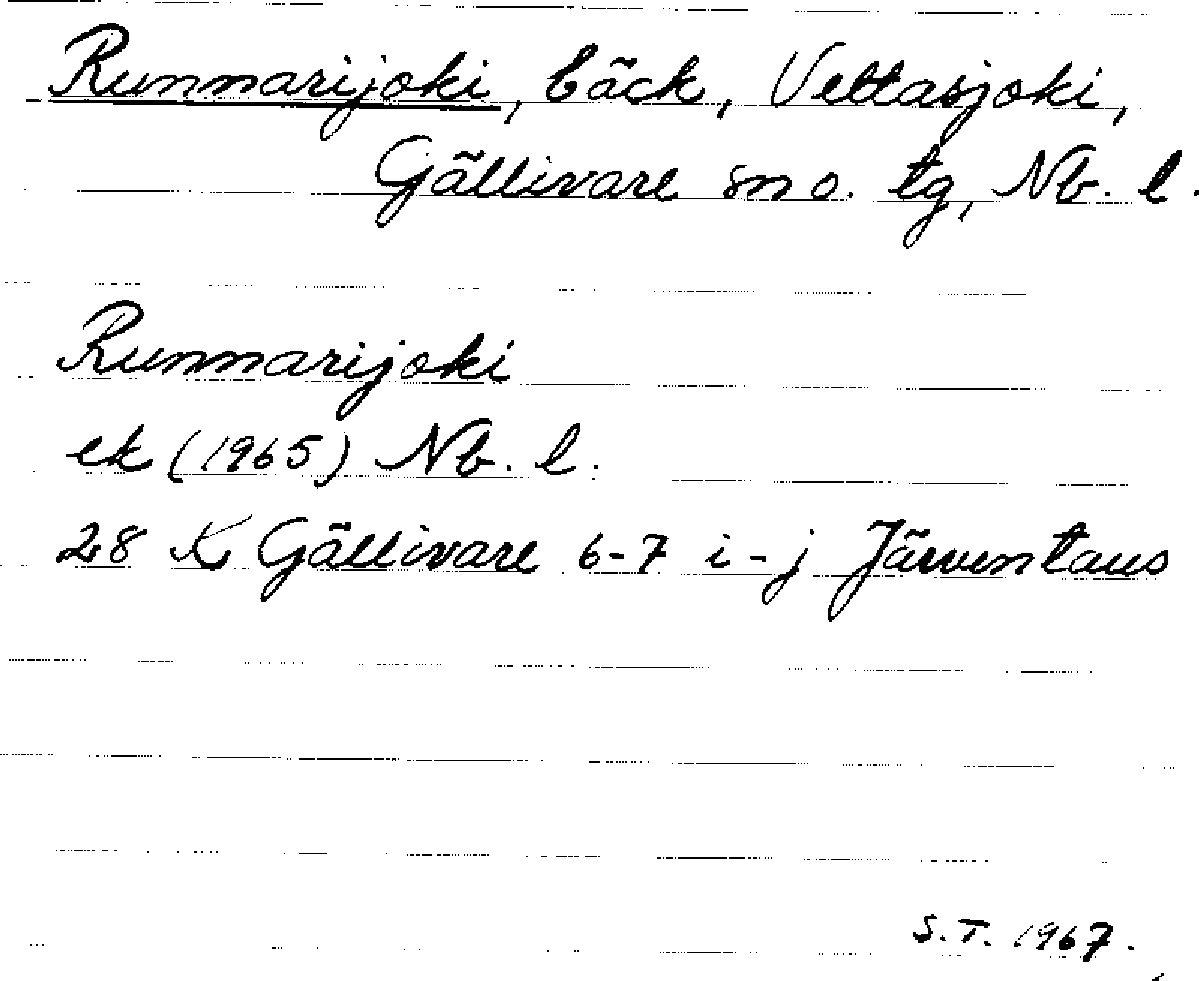 Runnarijoki, bäck, Vettasjoki,
Gällivare sn o. tg, Nb. l.
Runnarijoki
ek (1965) Nb. l.
28 K Gällivare 6-7 i-j Järventaus
S.T. 1967.